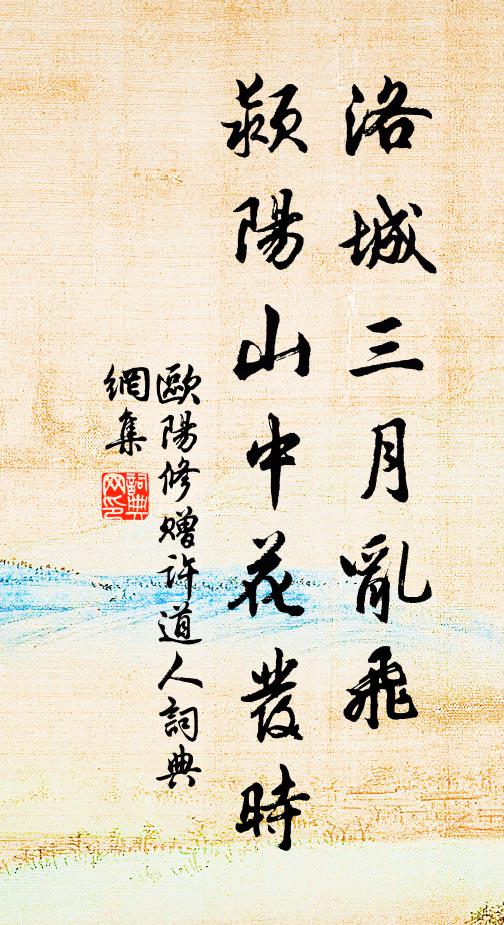 洛城三月亂飛
潁陽山中花發時
歐陽修贈許道人詞典
網集
詞典
网印